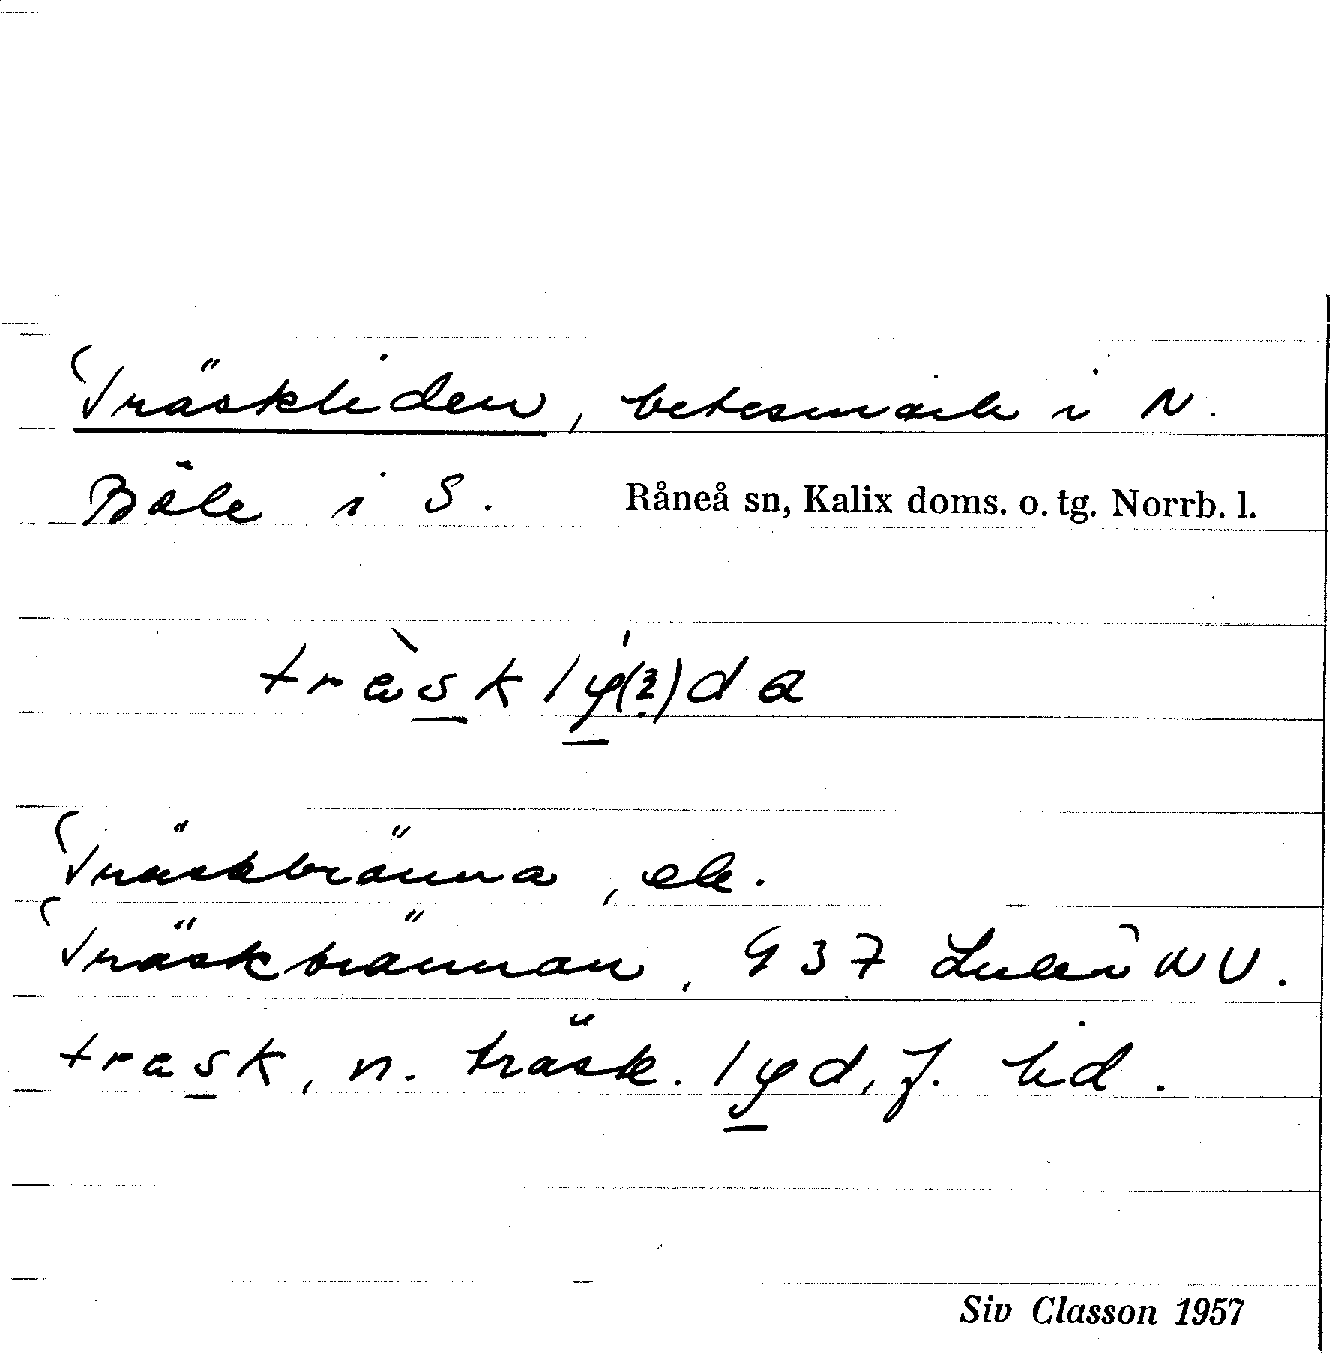 Träskliden, betesmark i N.
Böle i S. Råneå sn, Kalix doms. o. tg. Norrb. l.
Träskbränna, ek.
Träskbrännan, 937 Luleå NV.
trask, n. träsk. lyd, f. lid.
Siv Classon 1957